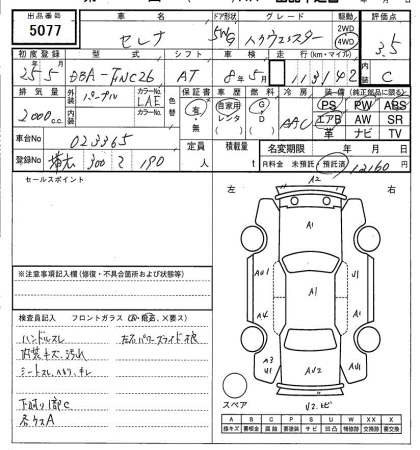 出品番号 車名 ドア形状 グレード 駆動 評価点
5077 セレナ 5W ハイウェイスター 2WD 4WD 3.5
初度登録 型式 シフト 車検 走行(km・マイル) 内装
25 5 DBA-FNC26 AT 8年5月 113142 C
排気量 外装 パープル カラーNo. LAE 色替 保証書 車歴 燃料 冷房 装備(純正部品に限る)
2000c.c. 内装 カラーNo. 有・無 自家用 レンタ ( ) G D ( ) AAC PS PW ABS
エアB AW SR
革 ナビ TV
車台No 023365 定員 人 積載量 t 名変期限 年 月 日
登録No 300 190 R料金 未預託 預託済 12160円
セールスポイント
左 右
A2
A1
AU1 A1 U1
A4 A1
A3 U1 AV2 AU1
スペア
※注意事項記入欄(修復・不具合箇所および状態等)
検査員記入 フロントガラス
ハンドルスレ 左右パワースライド
内装キズ、汚れ
シートスレ、
下廻り1部C
各ウスA
A B C P S U W X XX
線キズ 要板金 腐蝕 要塗装 サビ 凹凸 補修跡 要交換